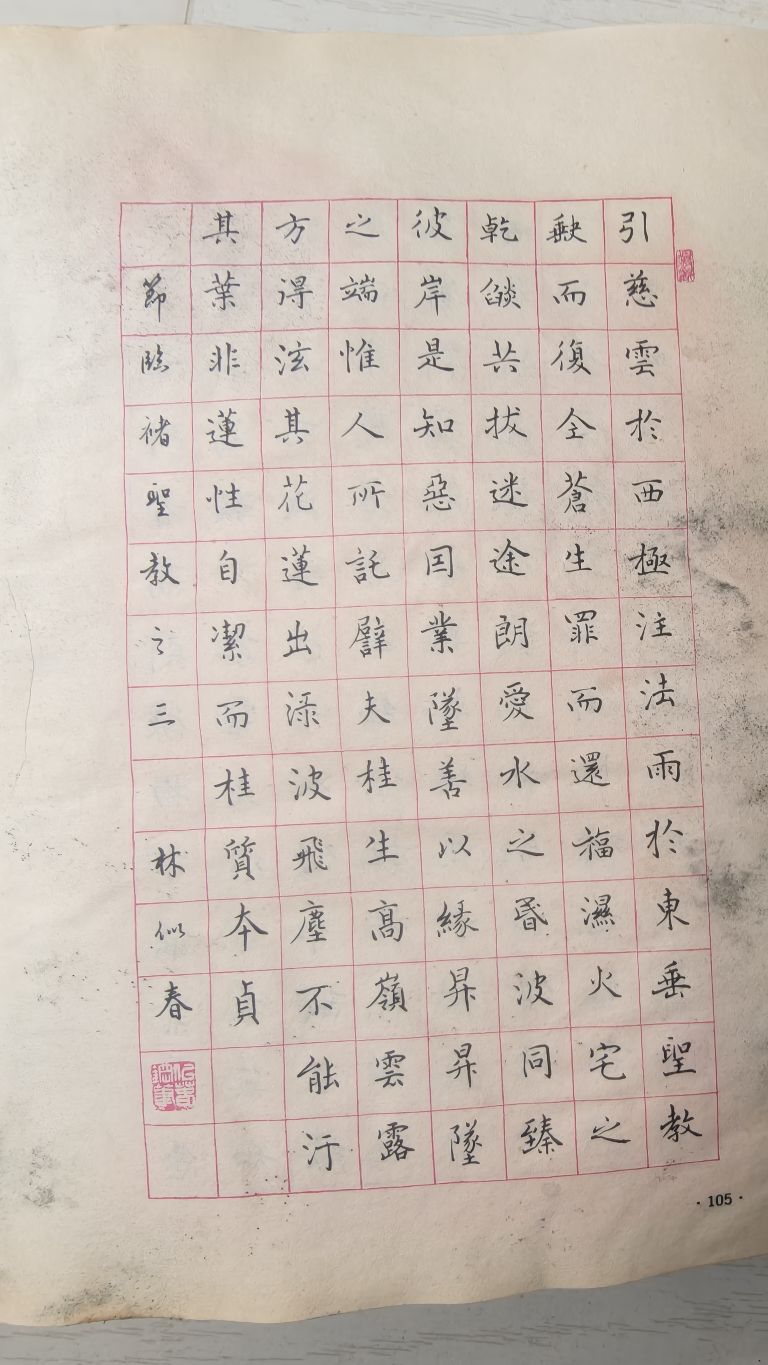 引慈雲於西極注法雨於東垂聖教
缺而復全蒼生罪而還福濕火宅之
乾燄共拔迷途朗愛水之昬波同臻
彼岸是知惡囙業墜善以緣昇昇墜
之端惟人所託譬夫桂生高嶺雲露
方得泫其花蓮出淥波飛塵不能汙
其葉非蓮性自潔而桂質本貞
節臨褚聖教之三 林似春
·105·